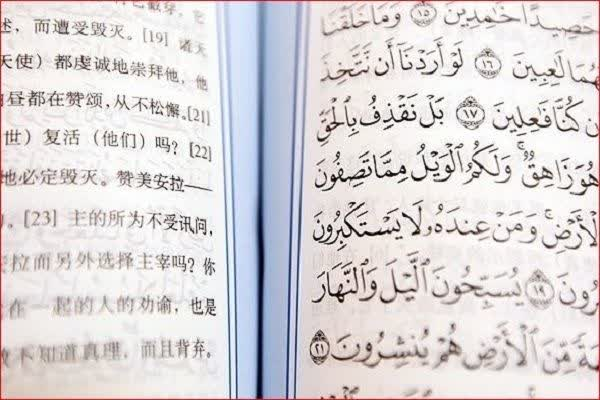 述，而遭受毁灭。[19] 诸天
天使）都虔诚地崇拜他，他
昼都在赞颂，从不松懈。[21]
世）复活（他们）吗？[22]
地必定毁灭。赞美安拉——
。[23] 主的所为不受讯问，
拉而另外选择主宰吗？你
在一起的人的劝谕，也是
不知道真理，而且背弃。
حَصِيدًا خَٰمِدِينَ ١٥ وَمَا خَلَقْنَا
هُمَا لَٰعِبِينَ ١٦ لَوْ أَرَدْنَآ أَن نَّتَّخِذَ
كُنَّا فَٰعِلِينَ ١٧ بَلْ نَقْذِفُ بِٱلْحَقِّ
هُوَ زَاهِقٌ ۚ وَلَكُمُ ٱلْوَيْلُ مِمَّا تَصِفُونَ
ٱلْأَرْضِ ۚ وَمَنْ عِندَهُۥ لَا يَسْتَكْبِرُونَ
رُونَ ١٩ يُسَبِّحُونَ ٱلَّيْلَ وَٱلنَّهَارَ
مِّنَ ٱلْأَرْضِ هُمْ يُنشِرُونَ ٢١